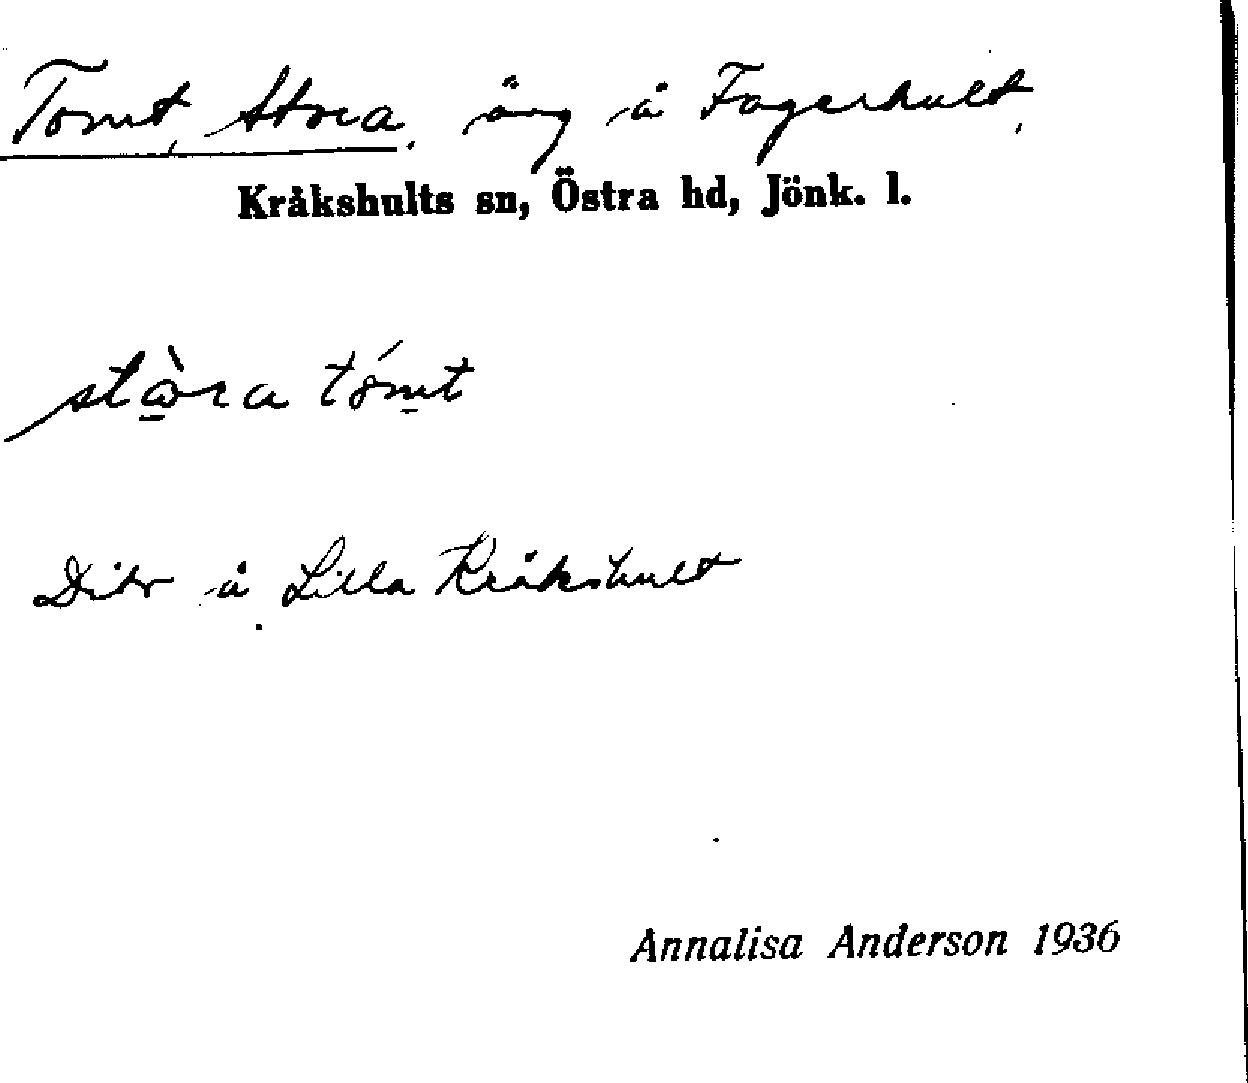 Tomt, Stora, äng å Fagerhult,
Kråkshults sn, Östra hd, Jönk. l.
stò̠ra tómt
Dito å Lilla Kråkshult
Annalisa Anderson 1936